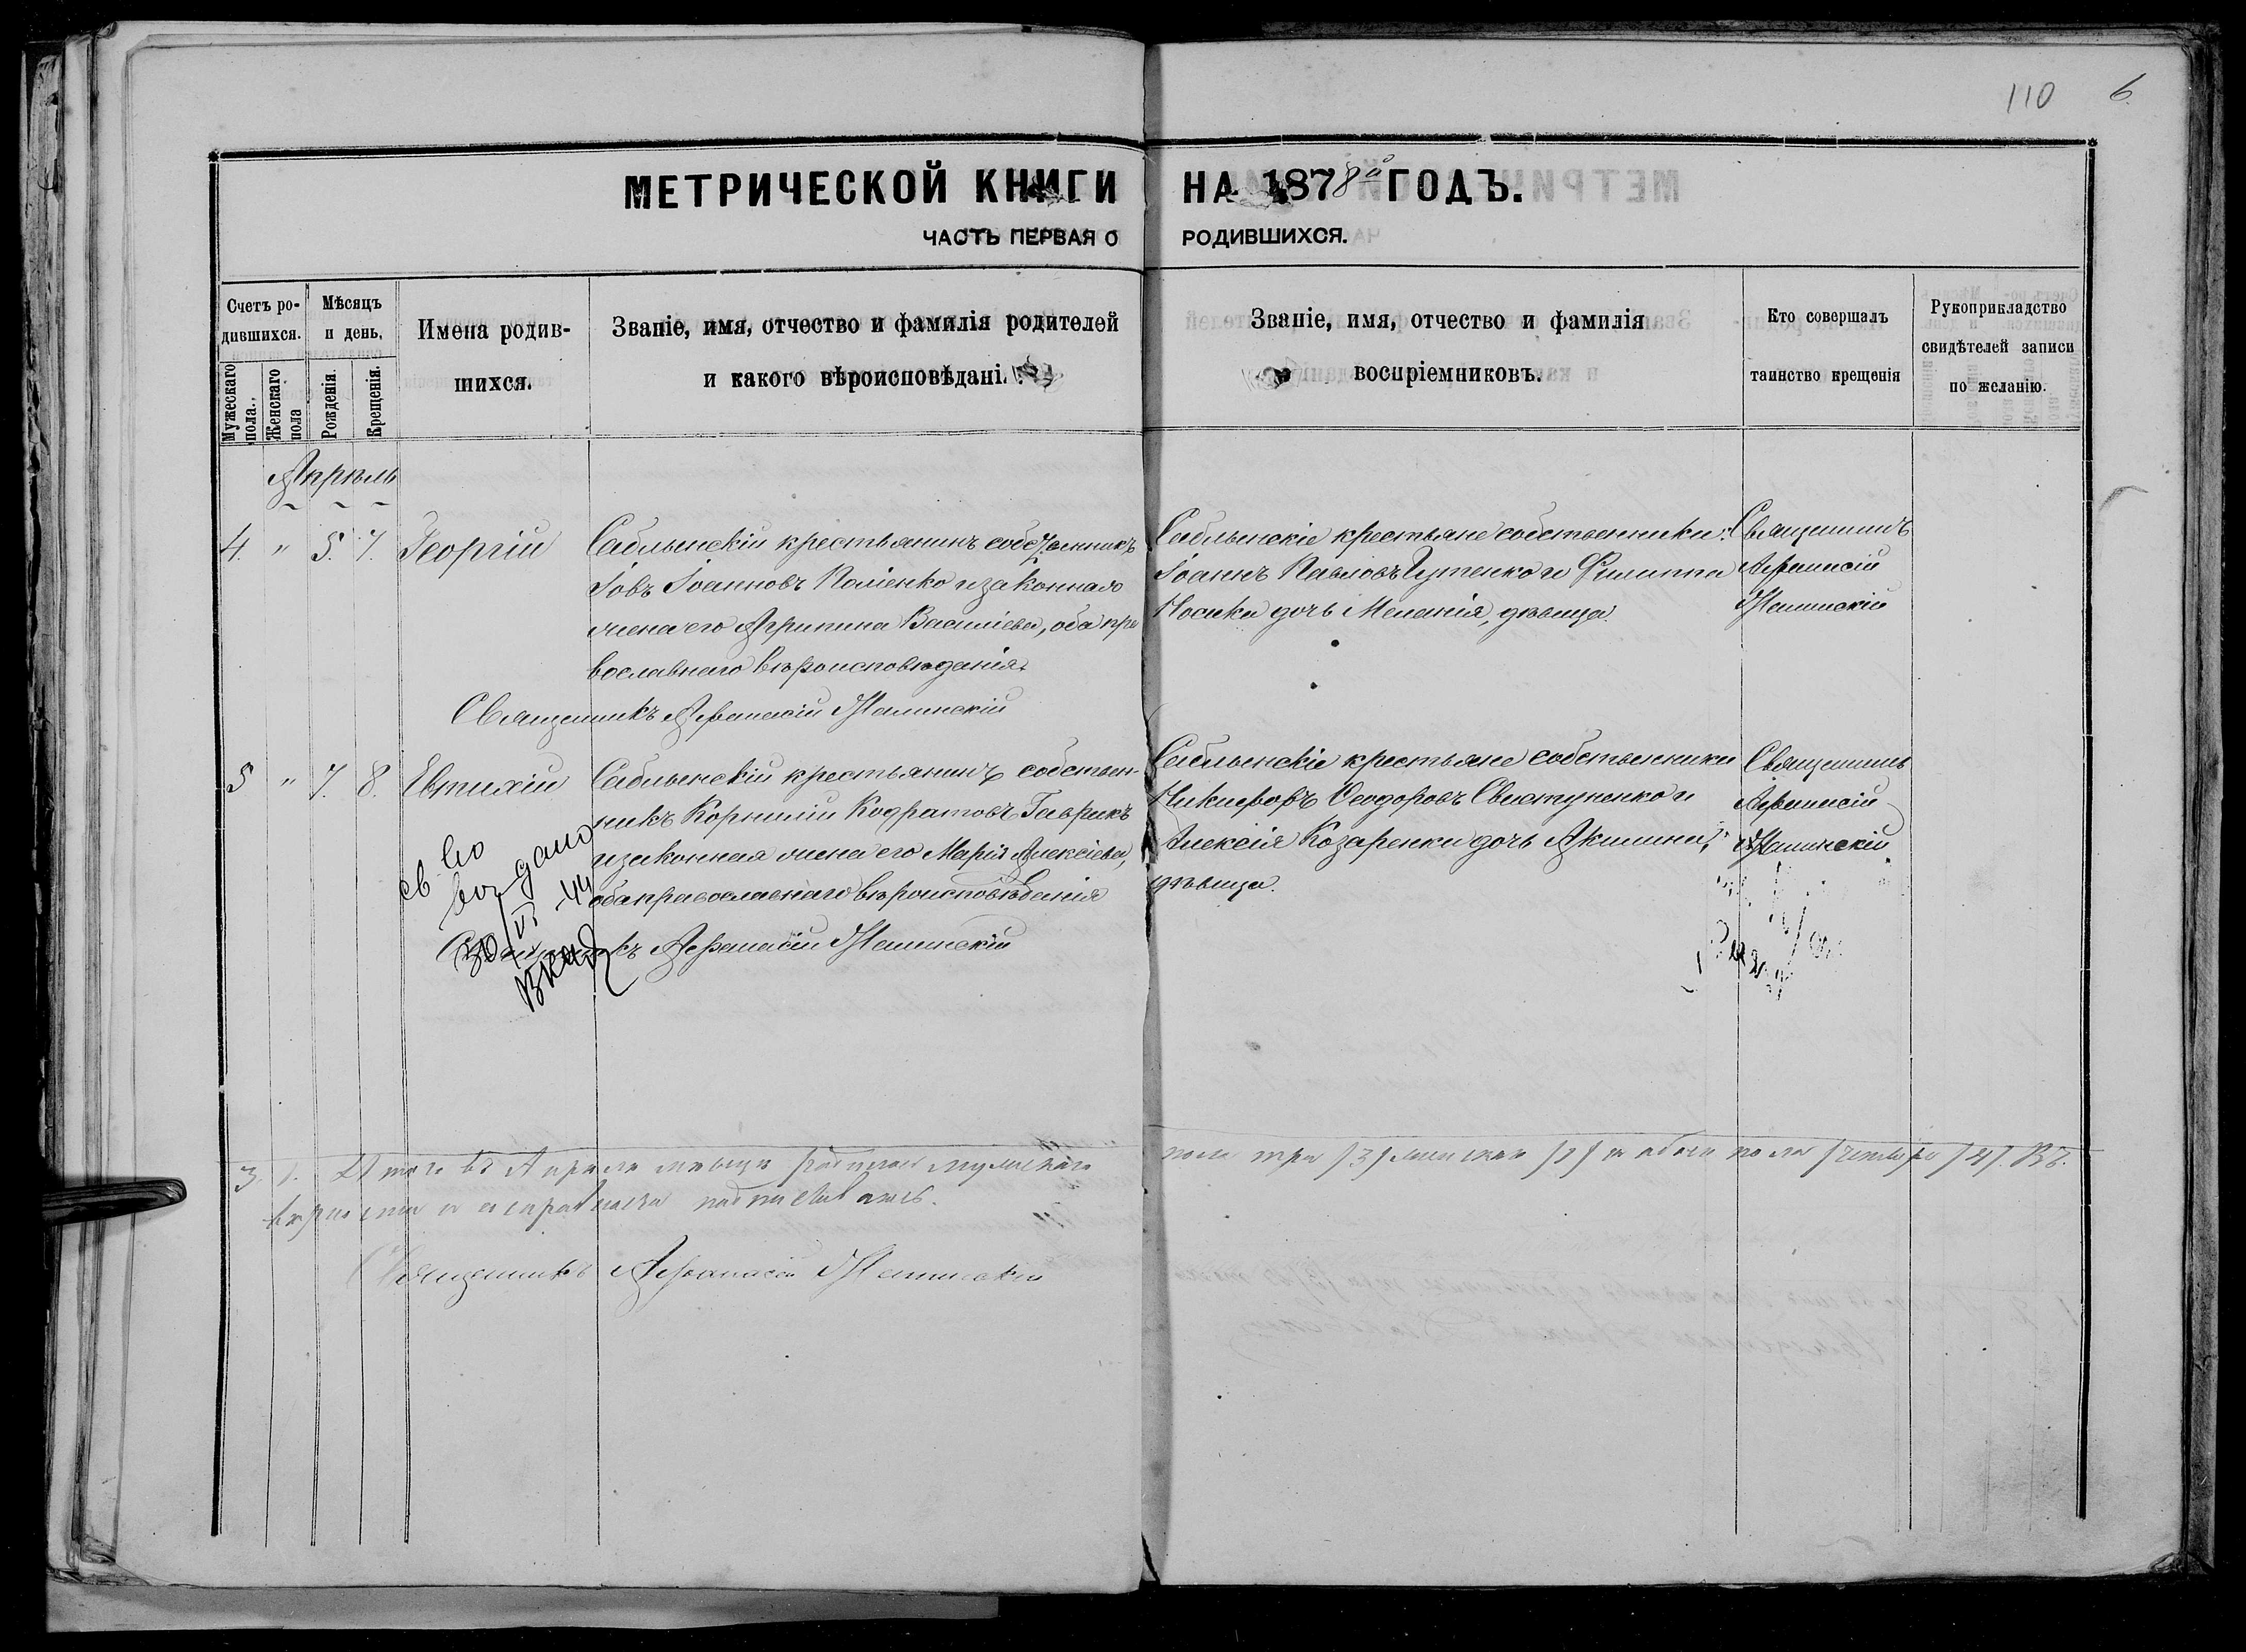 110 6.
МЕТРИЧЕСКОЙ КНИГИ НА 1878й ГОДЪ.
ЧАСТЬ ПЕРВАЯ О РОДИВШИХСЯ.
Счетъ ро-
дившихся.
Мужескаго
пола.
Женскаго
пола
Мѣсяцъ
и день.
Рожденія.
Крещенія.
Имена родив-
шихся.
Званіе, имя, отчество и фамилія родителей
и какого вѣроисповѣдані.
Званіе, имя, отчество и фамилія
воспріемниковъ.
Кто совершалъ
таинство крещенія
Рукоприкладство
свидѣтелей записи
по желанію.
Апрѣль
4. " 5. 7. Георгій
крестьянинъ
Іовъ Іоанновъ и законная
жена его Агрипина Василіева, оба пра
вославнаго вѣроисповѣданія.
Священникъ Афанасій
крестьяне собственники:
Іоаннъ Павловъ и Филиппа
Носика дочь Меланія, дѣвица.
Священникъ
Афанасій
5 " 7. 8. Евтихій
крестьянинъ собствен-
никъ Корнилій Кодратовъ Гаврикъ
и законная жена его Марія Алексіева,
оба православнаго вѣроисповѣданія
Афанасій
крестьяне собственники
Никифоръ Ѳеодоровъ Свистуненко и
Алексія Козаренка дочь Акилина,
дѣвица.
Священникъ
Афанасій
св во
дано
30/VI - 44
3. 1. Итого въ Апрѣлѣ мѣсяцѣ мужескаго
пола три (3) женскаго (1) и обоего пола четыре (4). Въ
подписываюсь.
Священникъ Афанасій